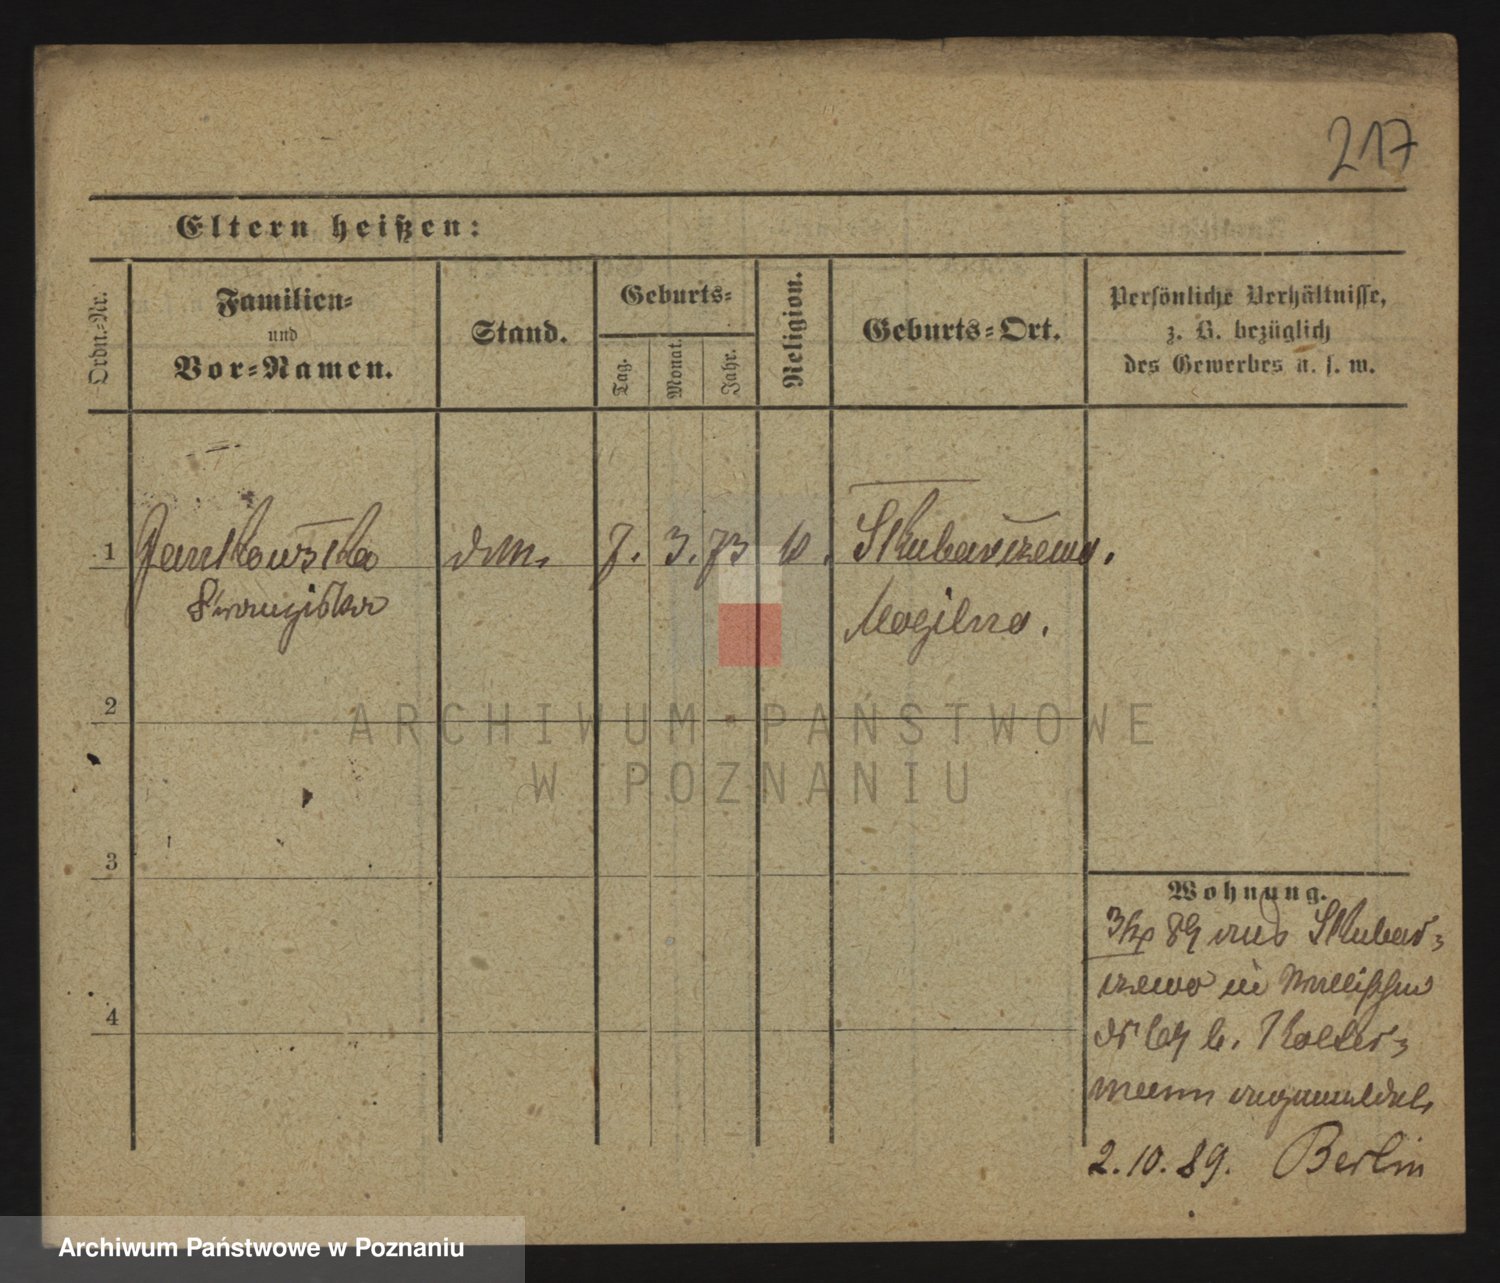 217
Eltern heißen:
Ordn.-Nr.
Familien-
und
Vor-Namen.
Stand.
Geburts-
Tag.
Monat.
Jahr.
Religion.
Geburts-Ort.
Persönliche Verhältnisse,
z. B. bezüglich
des Gewerbes u. s. w.
1
Jankowska
Franziska
7. 3. 73
Skubarczewo.
Mogilno.
2
3
4
Wohnung.
89 aus Skubar-
czewo in
b.
mann angemeldet
2.10.89. Berlin
ARCHIWUM PAŃSTWOWE
W POZNANIU
Archiwum Państwowe w Poznaniu